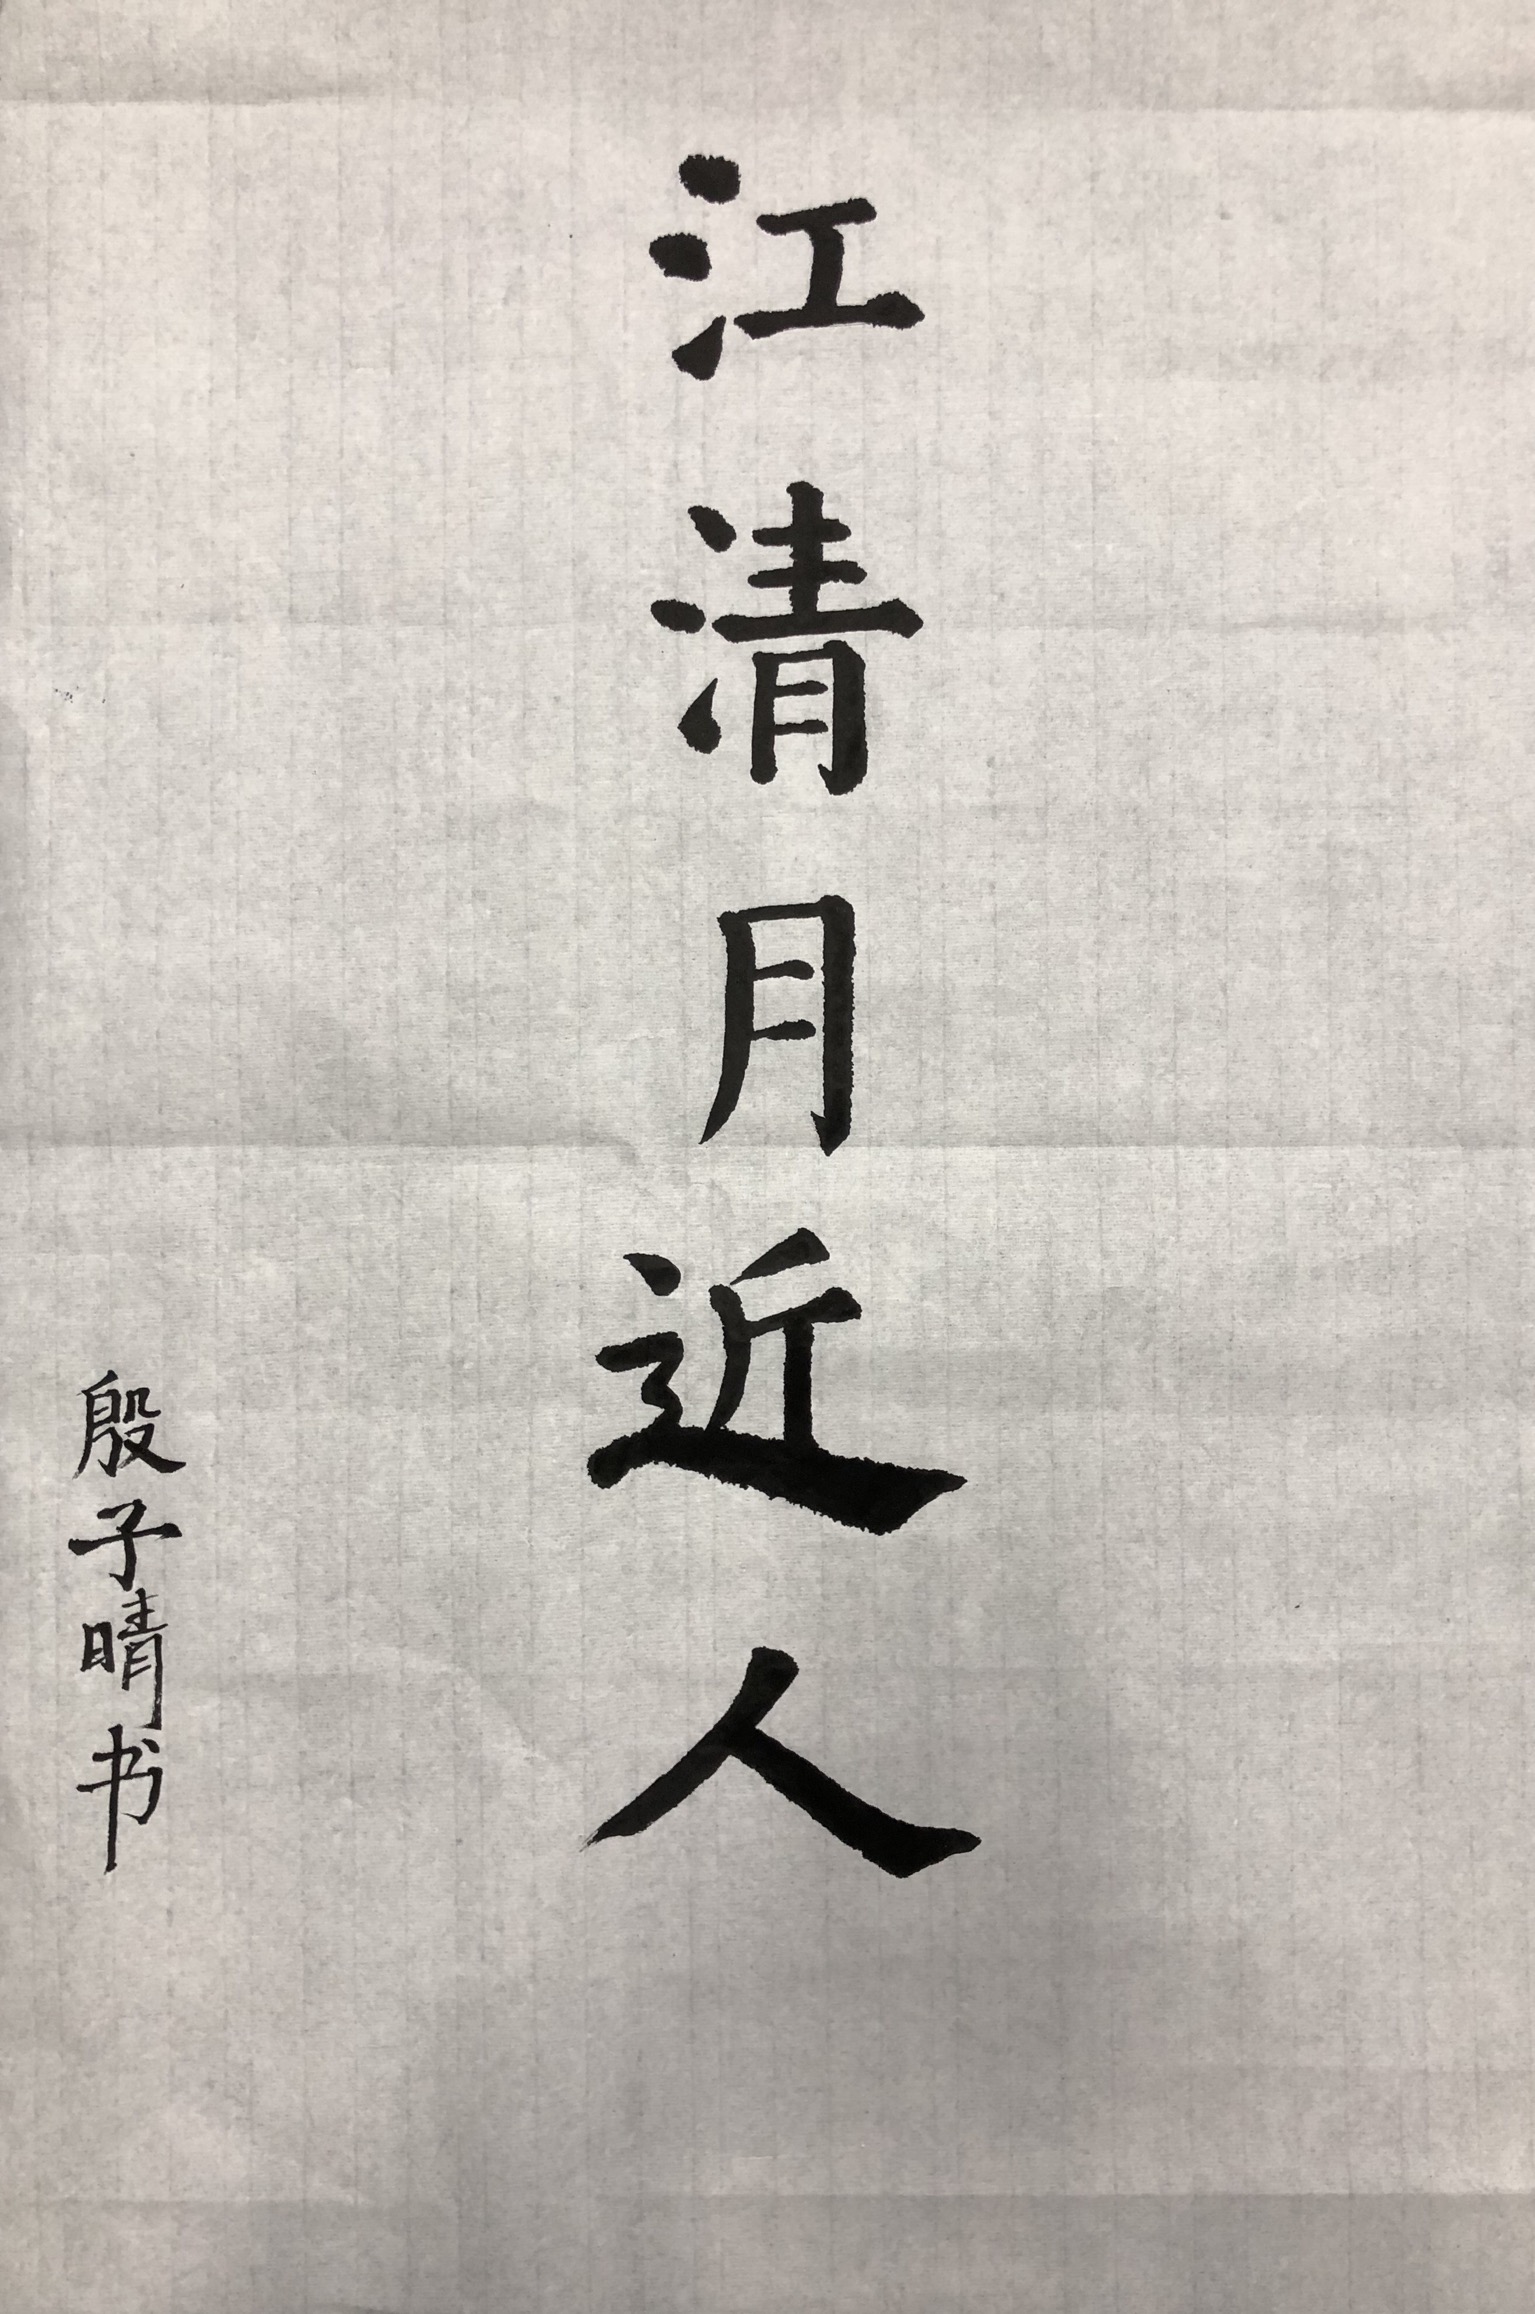 江清月近人
殷子晴书